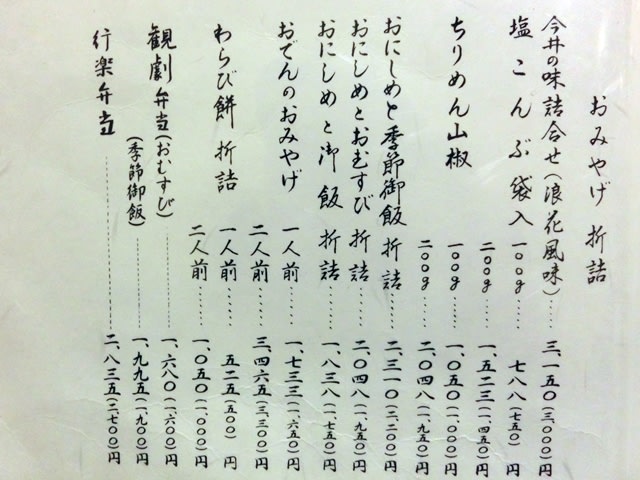 おみやげ 折詰
今井の味詰合せ(浪花風味)……三、一五〇(三、〇〇〇)円
塩こんぶ袋入 一〇〇g……七八八(七五〇)円
二〇〇g……一、五二三(一、四五〇)円
ちりめん山椒 一〇〇g……一、〇五〇(一、〇〇〇)円
二〇〇g……二、〇四八(一、九五〇)円
おにしめと季節御飯 折詰……二、三一〇(二、二〇〇)円
おにしめとおむすび 折詰……二、〇四八(一、九五〇)円
おにしめと御飯 折詰……一、八三八(一、七五〇)円
おでんのおみやげ 一人前……一、七三三(一、六五〇)円
二人前……三、四六五(三、三〇〇)円
わらび餅 折詰 一人前……五二五(五〇〇)円
二人前……一、〇五〇(一、〇〇〇)円
観劇弁当(おむすび)……一、六八〇(一、六〇〇)円
(季節御飯)……一、九九五(一、九〇〇)円
行楽弁当……二、八三五(二、七〇〇)円